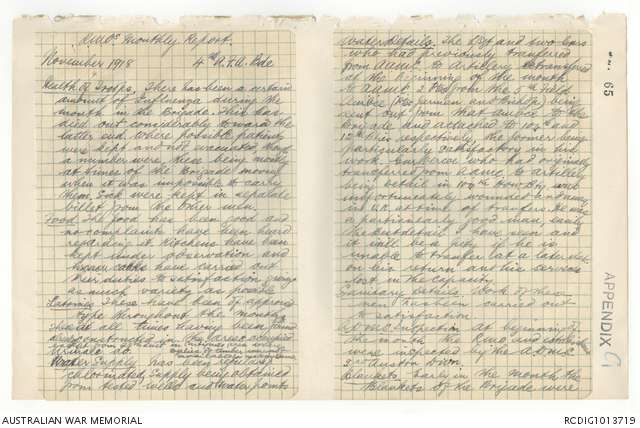 R.M.O's Monthly Report.
November 1918 4th A.F.A. Bde
Health of Troops. There has been a certain
amount of Influenza during the
month in the Brigade. This has
died out considerably towards the
latter end. Where possible patients
were kept and not evacuated, though
a number were, these being mostly
at times of the Brigade moving
when it was impossible to carry
them. Sick were kept in separate
billet from the other men.
Food The food has been good and
no complaints have been heard
regarding it. Kitchens have been
kept under observation and
cooks have carried out
their duties to satisfaction, giving
as much variety as possible
Latrines These have been of approved
type throughout the month
at all times having been found
or constructed in the areas occupied
Urinals do.
Water Supply has been
chlorinated, supply being obtained
from tested wells and water points
Water details. The Cpl and two
who had previously transferred
from A.A.M.C. to Artillery retransferred
at the beginning of the month
to A.A.M.C. 2 Pte from the 5th Field
Ambce being
sent out from that Ambce to the
Brigade and attached to 10th and
12th Btys respectively, the former being
particularly satisfactory in his
work. who had originally
transferred from A.A.M.C. to Artillery
being detail in 104th How Bty was
unfortunately wounded and now
in U.K. on account of wounds. He was
a particularly good man, easily
the best detail I have seen and
it will be a pity if he is
unable to transfer at a later
on his return and his services
lost in the capacity.
Sanitary details. Work of these
men has been carried out
to satisfaction.
A.D.M.S. Inspection At beginning of
the month the R.M.O. and
were inspected by the A.D.M.S.
2nd Austn Divn.
Blankets. Early in the month the
Blankets of the Brigade were
65
APPENDIX G
AUSTRALIAN WAR MEMORIAL
RCDIG1013719